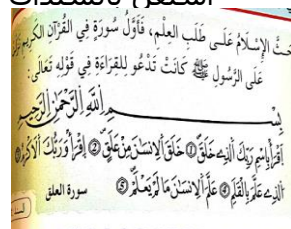 حَثَّ الإِسْلَامُ عَلَى طَلَبِ العِلْمِ، فَأَوَّلُ سُورَةٍ فِي القُرْآنِ الكَرِيمِ
عَلَى الرَّسُولِ ﷺ كَانَتْ تَدْعُو لِلقِرَاءَةِ فِي قَوْلِهِ تَعَالَى:
بِسْمِ اللَّهِ الرَّحْمَٰنِ الرَّحِيمِ
اِقْرَأْ بِاسْمِ رَبِّكَ الَّذِے خَلَقَ ① خَلَقَ الْإِنسَٰنَ مِنْ عَلَقٍ ② اِقْرَأْ وَرَبُّكَ الْأَكْرَمُ ③
الَّذِے عَلَّمَ بِالْقَلَمِ ④ عَلَّمَ الْإِنسَٰنَ مَا لَمْ يَعْلَمْ ⑤
سورة العلق